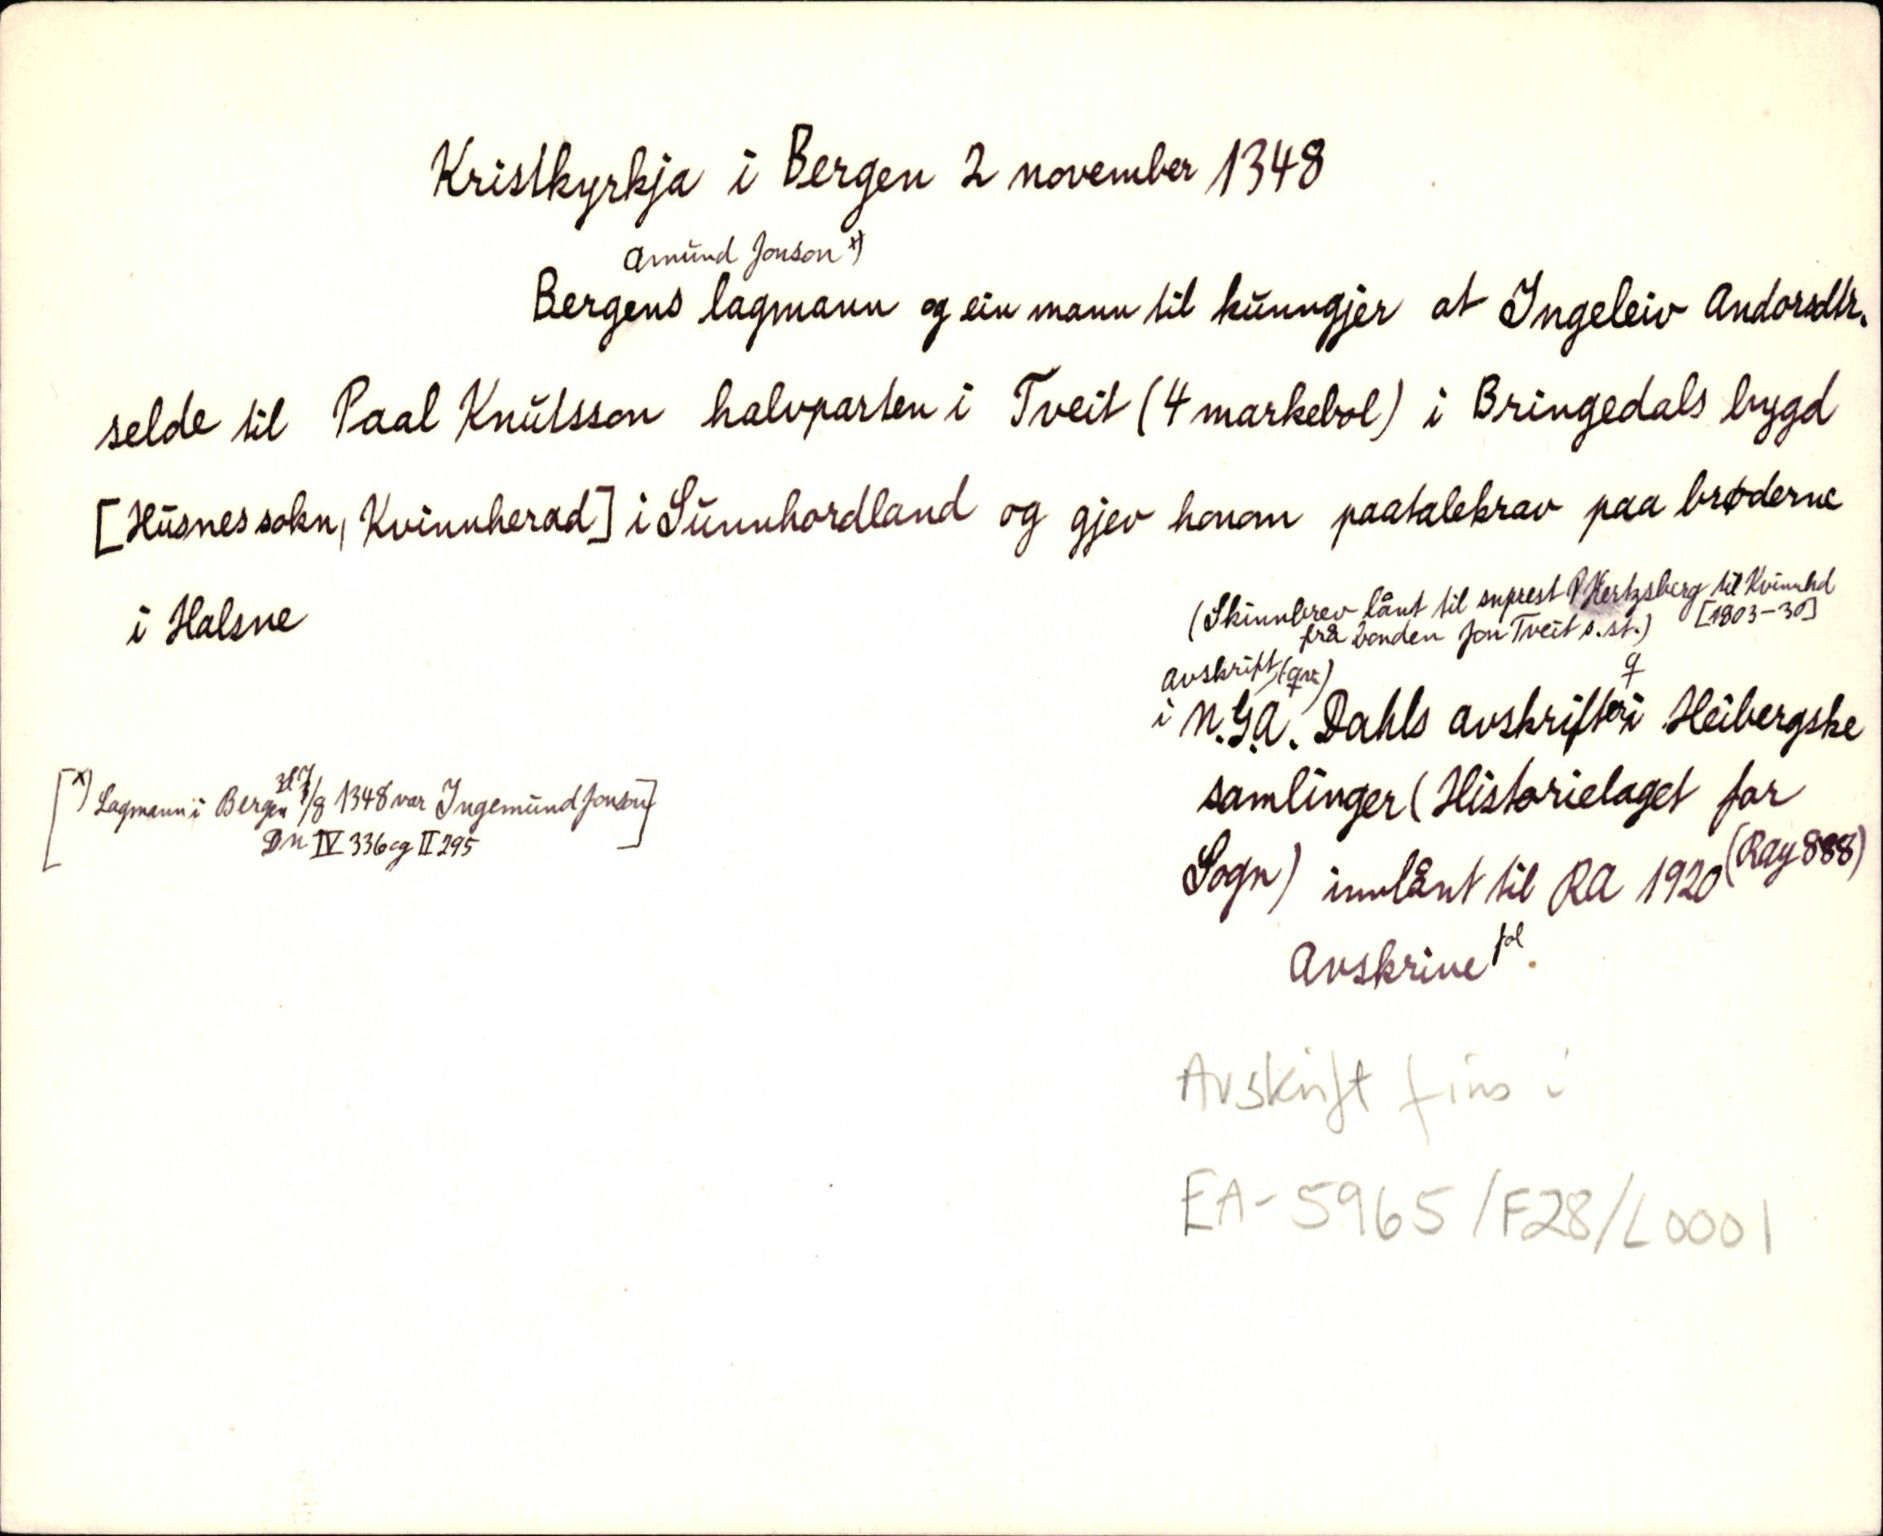 Kristkyrkja i Bergen 2 november 1348
Amund Jonson x)
Bergens lagmann og ein mann til kunngjer at Ingeleiv Andorsdtr.
selde til Paal Knutsson halvparten i Tveit (4 markebol) i Bringedals bygd
[Husnes sokn, Kvinnherad] i Sunnhordland og gjev honom paatalekrav paa brøderne
i Halsne
(Skinnbrev lånt til snprest P Hertzberg til Kvinnhd
frå bonden Jon Tveit s.st.) [1803-30]
avskrift (qv.)
i N.G.A. Dahls avskrifter i Heibergske
samlinger (Historielaget for
Sogn) innlånt til RA 1920 (Ray 888)
Avskrive fol.
[x) Lagmann i Bergen /8 1348 var Ingemund Jonson]
Dn IV 336 og II 295
Avskrift fins i
EA-5965/F28/L0001